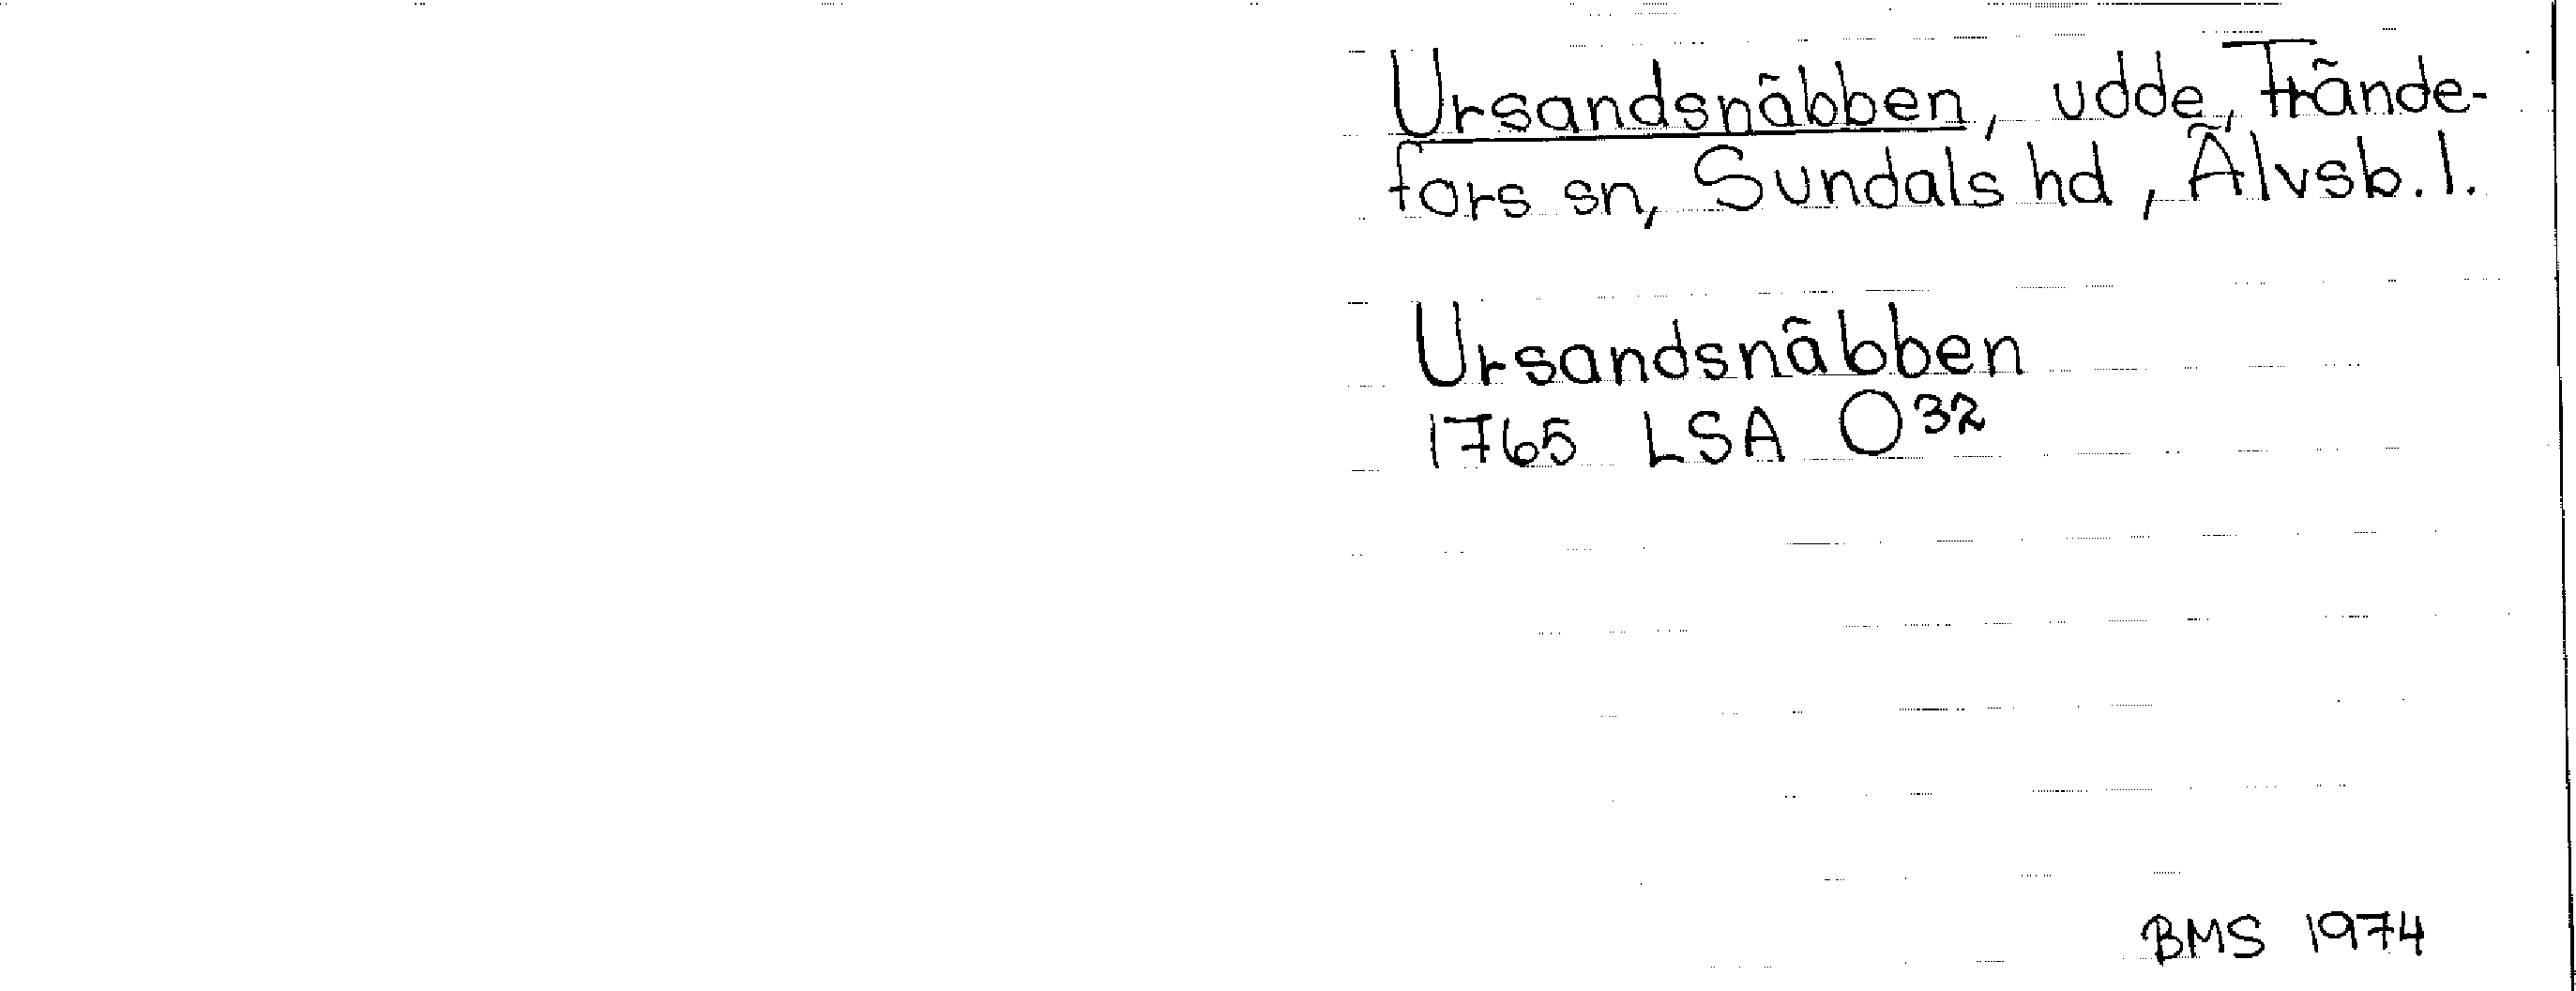 Ursandsnäbben, udde, Frände-
fors sn, Sundals hd, Älvsb. l.
Ursandsnäbben
1765 LSA O32
BMS 1974